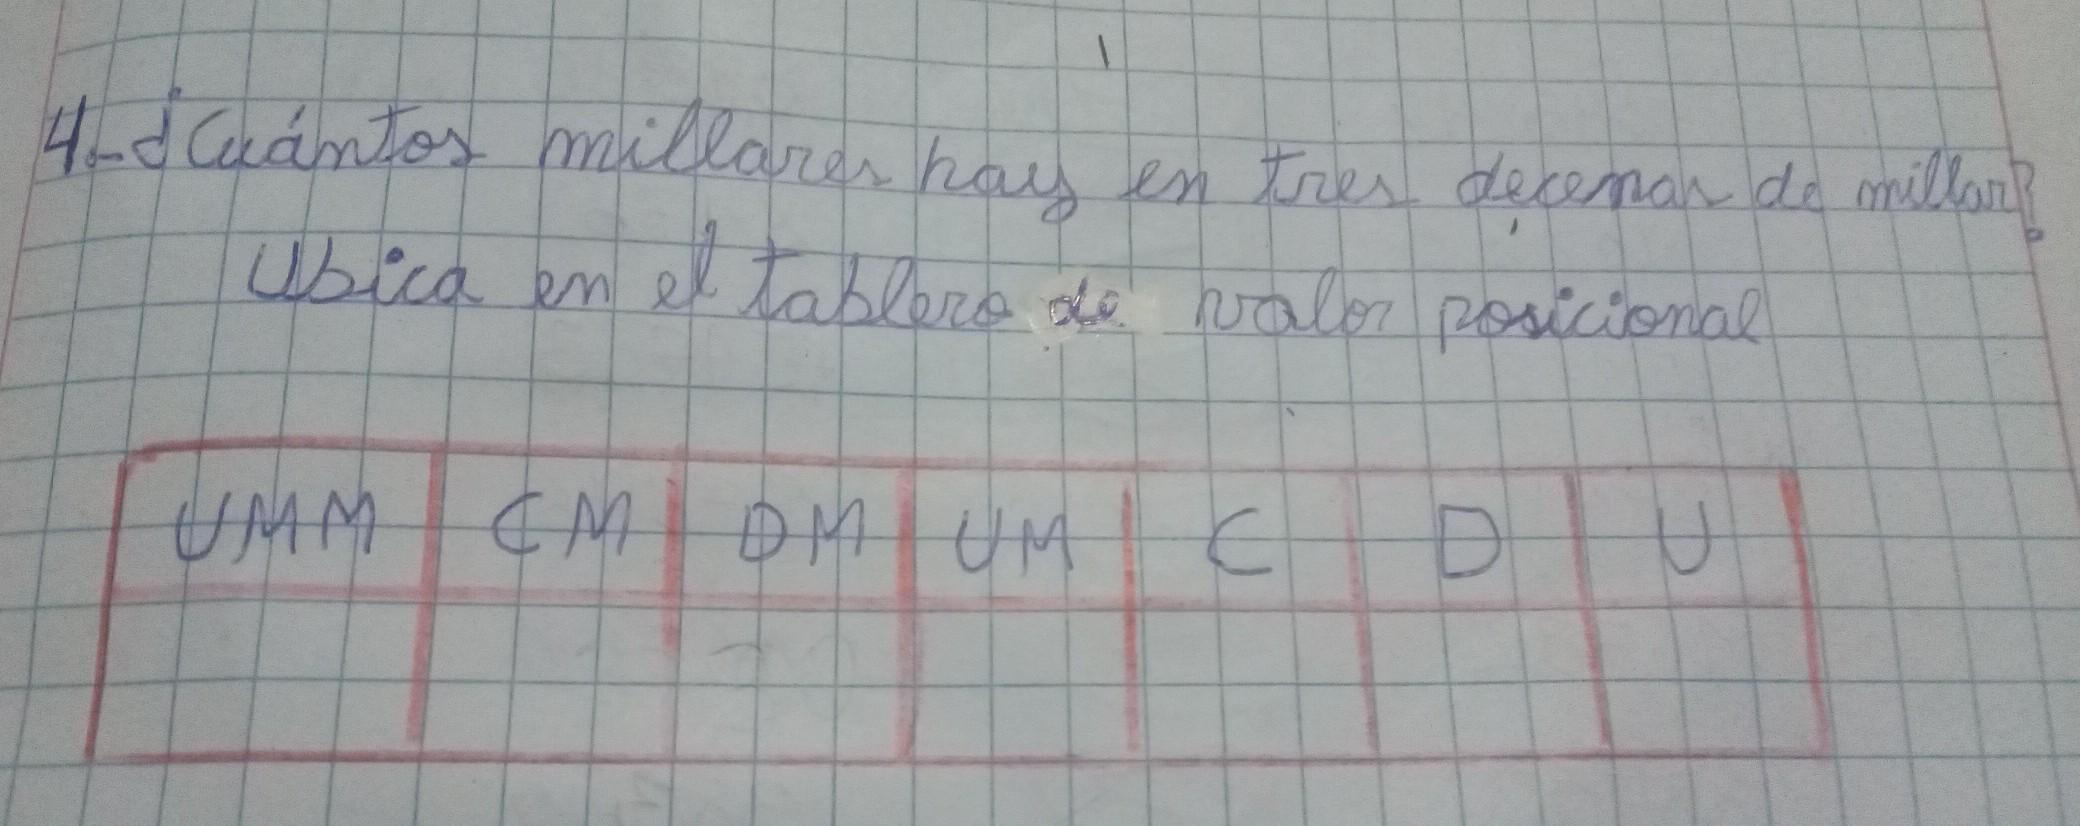 4.- ¿Cuántos millares hay en tres decenas de millar?
Ubica en el tablero de valor posicional
UMM CM DM UM C D U